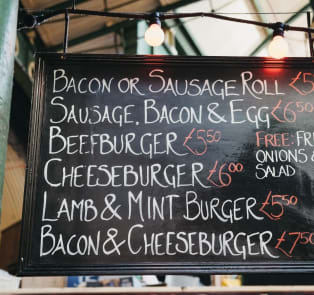 BACON OR SAUSAGE ROLL £5
SAUSAGE, BACON & EGG £6.50
BEEFBURGER £5.50
FREE: FRI
CHEESEBURGER £6.00
ONIONS &
SALAD
LAMB & MINT BURGER £5.50
BACON & CHEESEBURGER £7.50